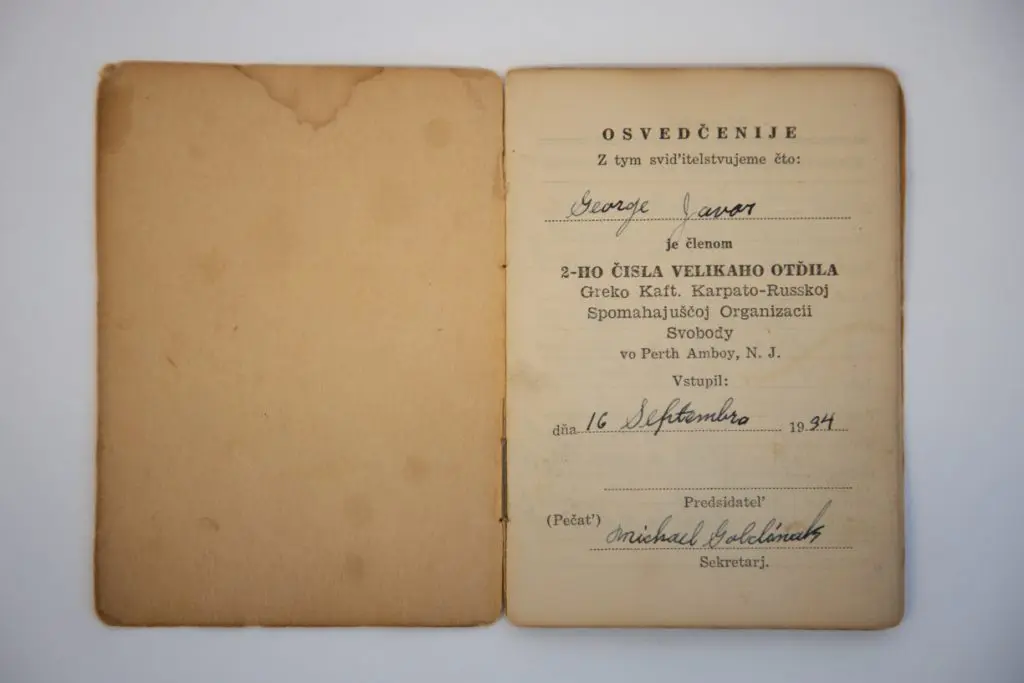 OSVEDČENIJE
Z tym sviďitelstvujeme čto:
George Javor
je členom
2-HO ČISLA VELIKAHO OTĎILA
Greko Kaft. Karpato-Russkoj
Spomahajuščoj Organizacii
Svobody
vo Perth Amboy, N. J.
Vstupil:
dňa 16 Septembra 1934
Predsidateľ
(Pečať) Michael
Sekretarj.